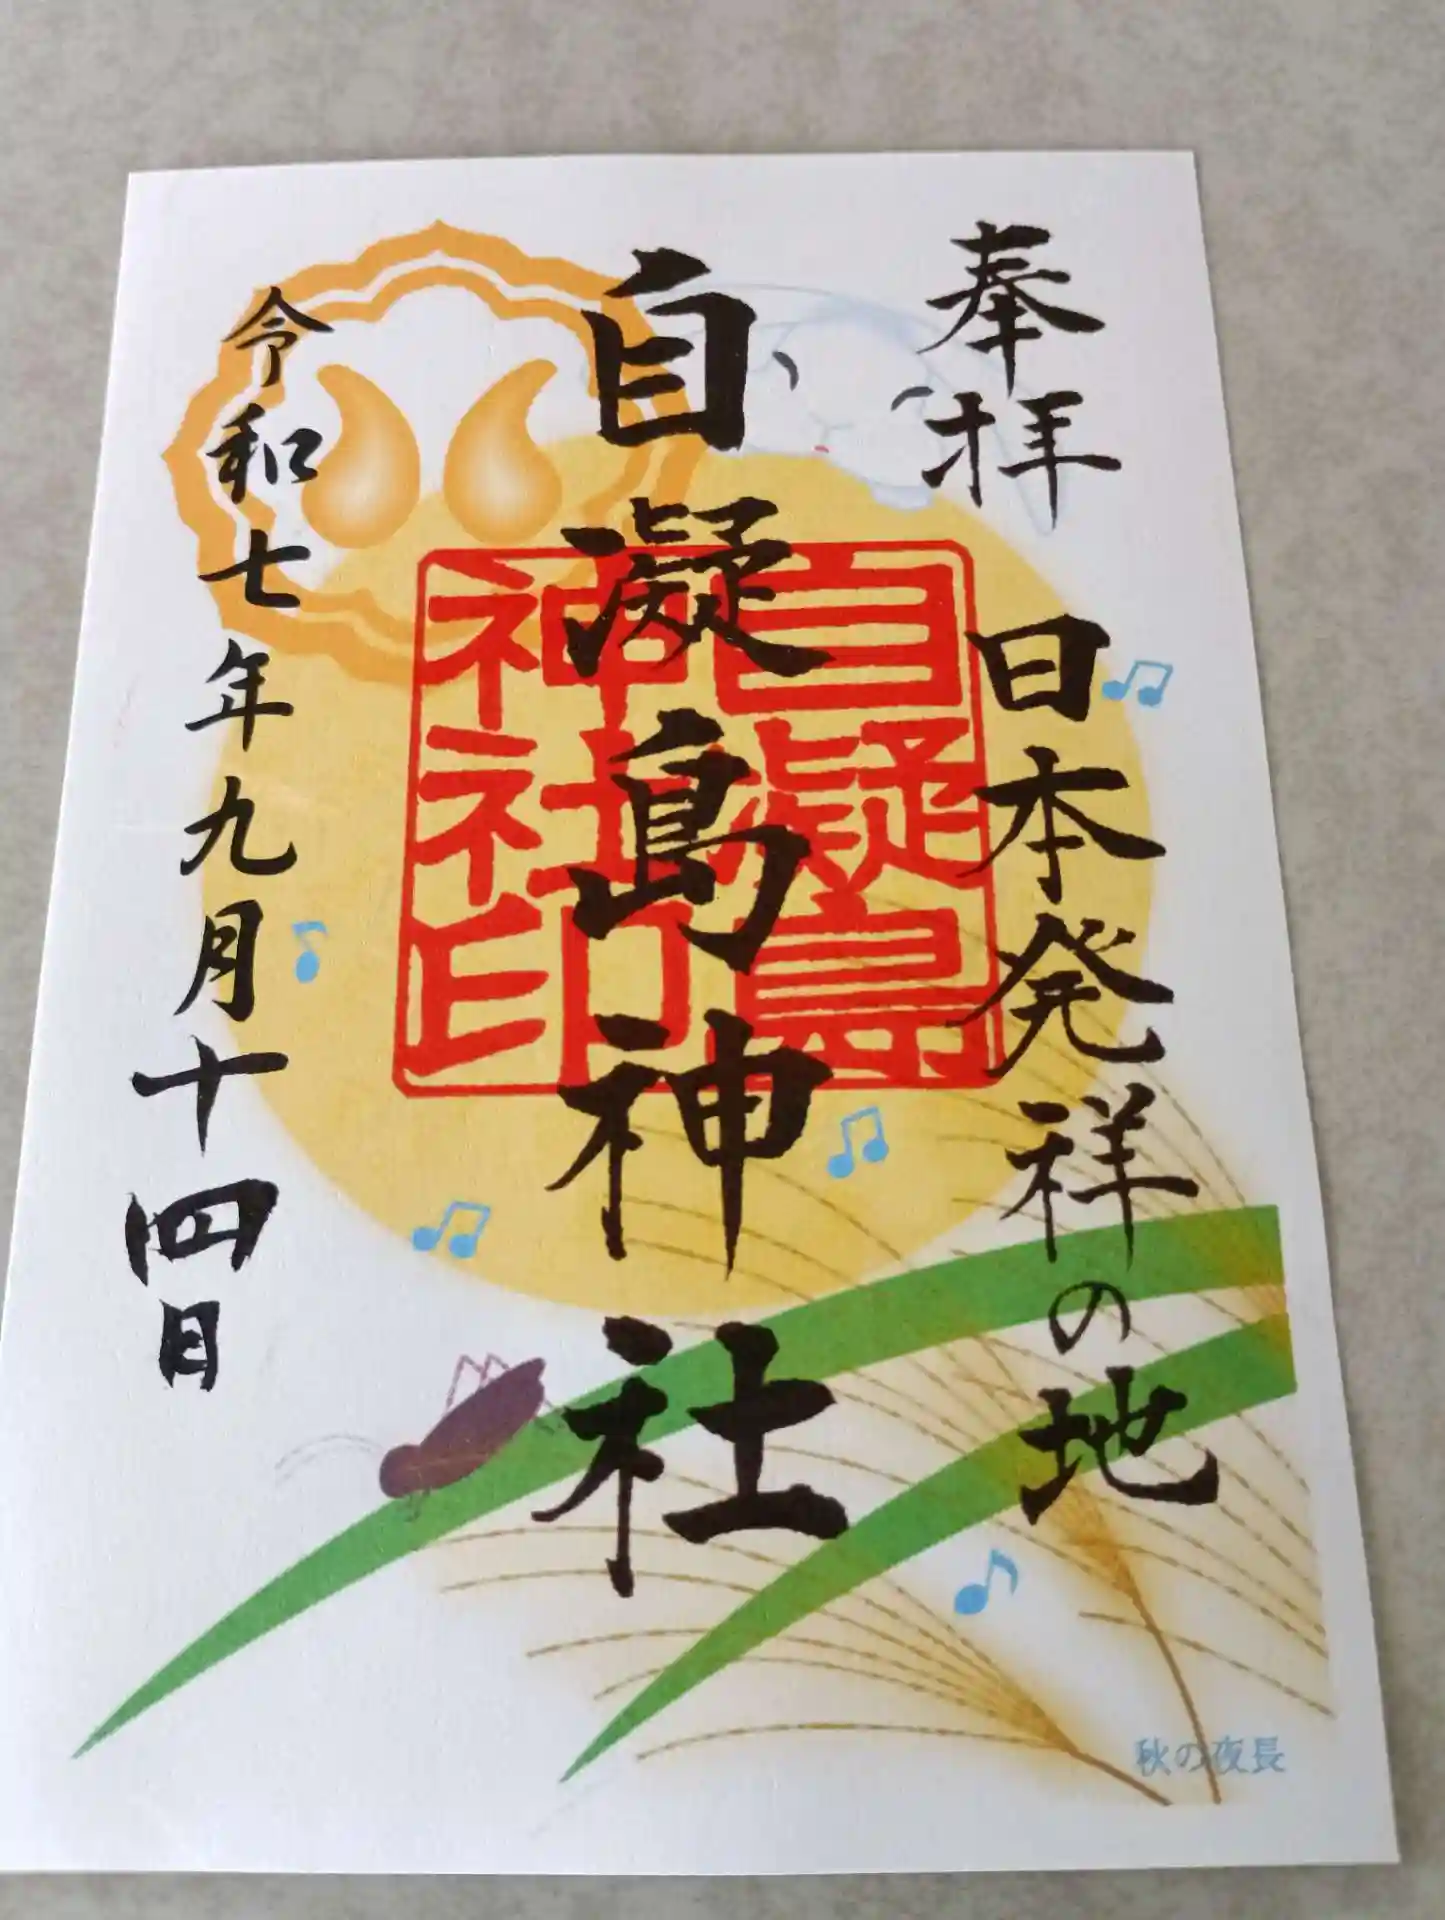 奉拝 日本発祥の地
自凝島神社
令和七年九月十四日
自凝島
神社印
秋の夜長